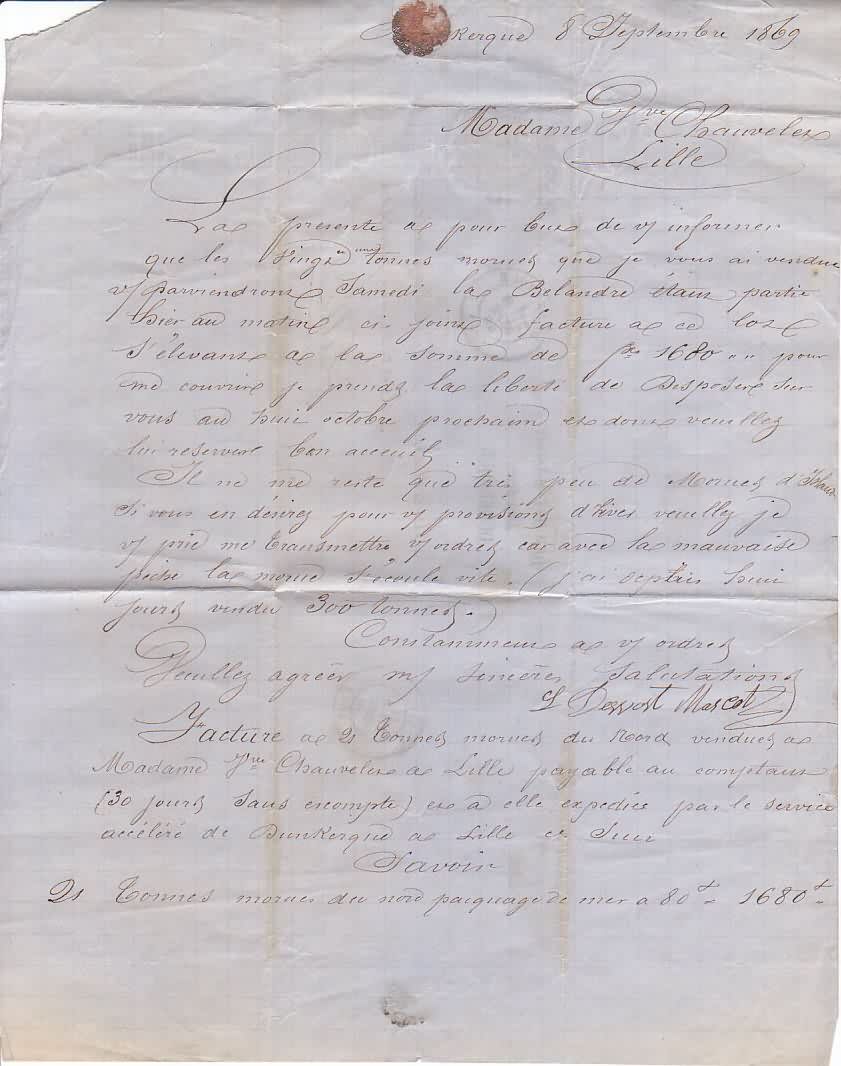 kerque 8 Septembre 1869
Madame Vve Chauvelex
Lille
La presente a pour but de v/ informer
que les Vingt une tonnes morues que je vous ai vendue
v/ parviendront Samedi la Belandre étant partie
hier au matin ci joint facture a ce lot
s'élevant a la somme de fcs 1680 " " pour
me couvrir je prends la liberté de Disposer sur
vous au huit octobre prochain et dont veuillez
lui reserver bon acceuil
Il ne me reste que très peu de Morues d'Islande
Si vous en désirez pour v/ provisions d'hiver veuillez je
v/ prie me transmettre v/ ordres car avec la mauvaise
pêche la morue s'écoule vite. (j'ai depuis huit
jours vendu 300 tonnes.)
Constamment a v/ ordres
Veuillez agréer m/ sincères Salutations
Mascot
Facture a 21 Tonnes morues du Nord vendues a
Madame Vve Chauvelex a Lille payable au comptant
(30 jours sans escompte) et a elle expédiés par le service
accéléré de Dunkerque a Lille et
Savoir
21 Tonnes morues du nord pacquage de mer a 80f - 1680f -